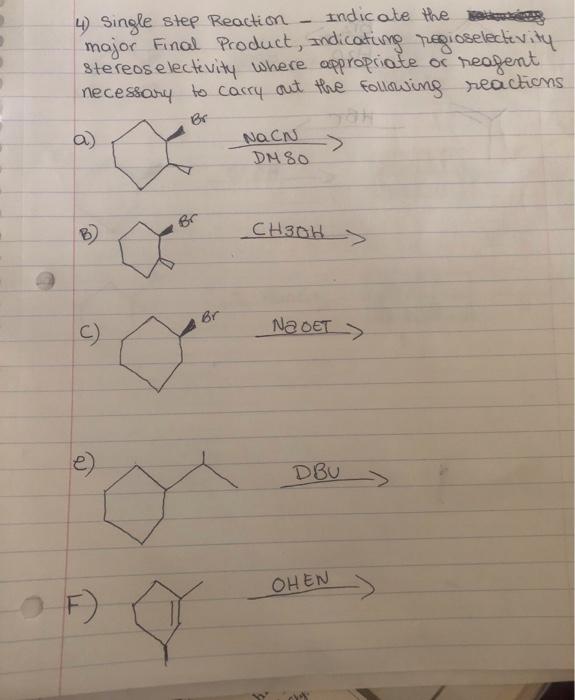 4) Single Step Reaction – Indicate the
major Final Product, indicating regioselectivity
stereoselectivity where appropriate or reagent
necessary to carry out the following reactions
a) Br NaCN
DMSO
B) Br CH3OH
C) Br NaOET
e) DBU
F) OHEN